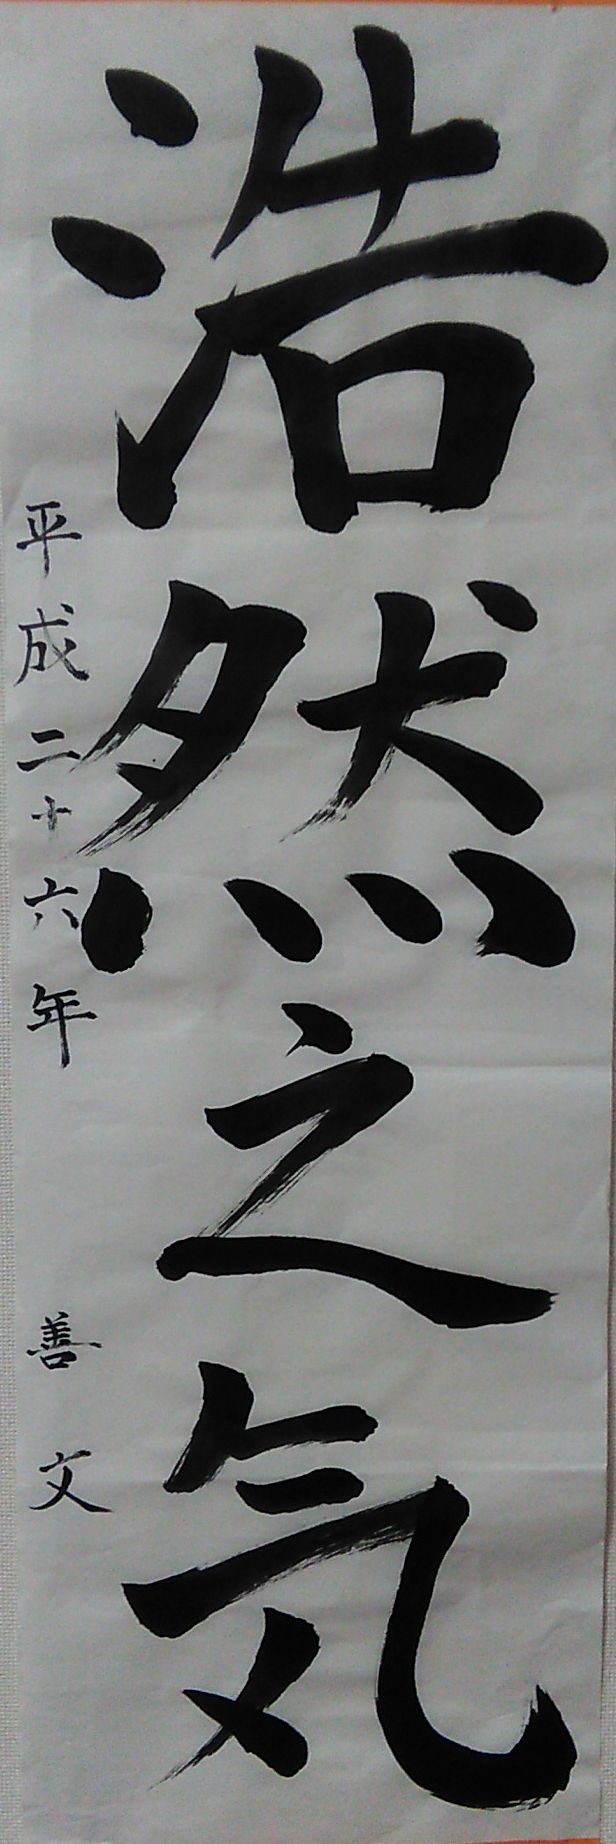 浩然之気
平成二十六年 善文